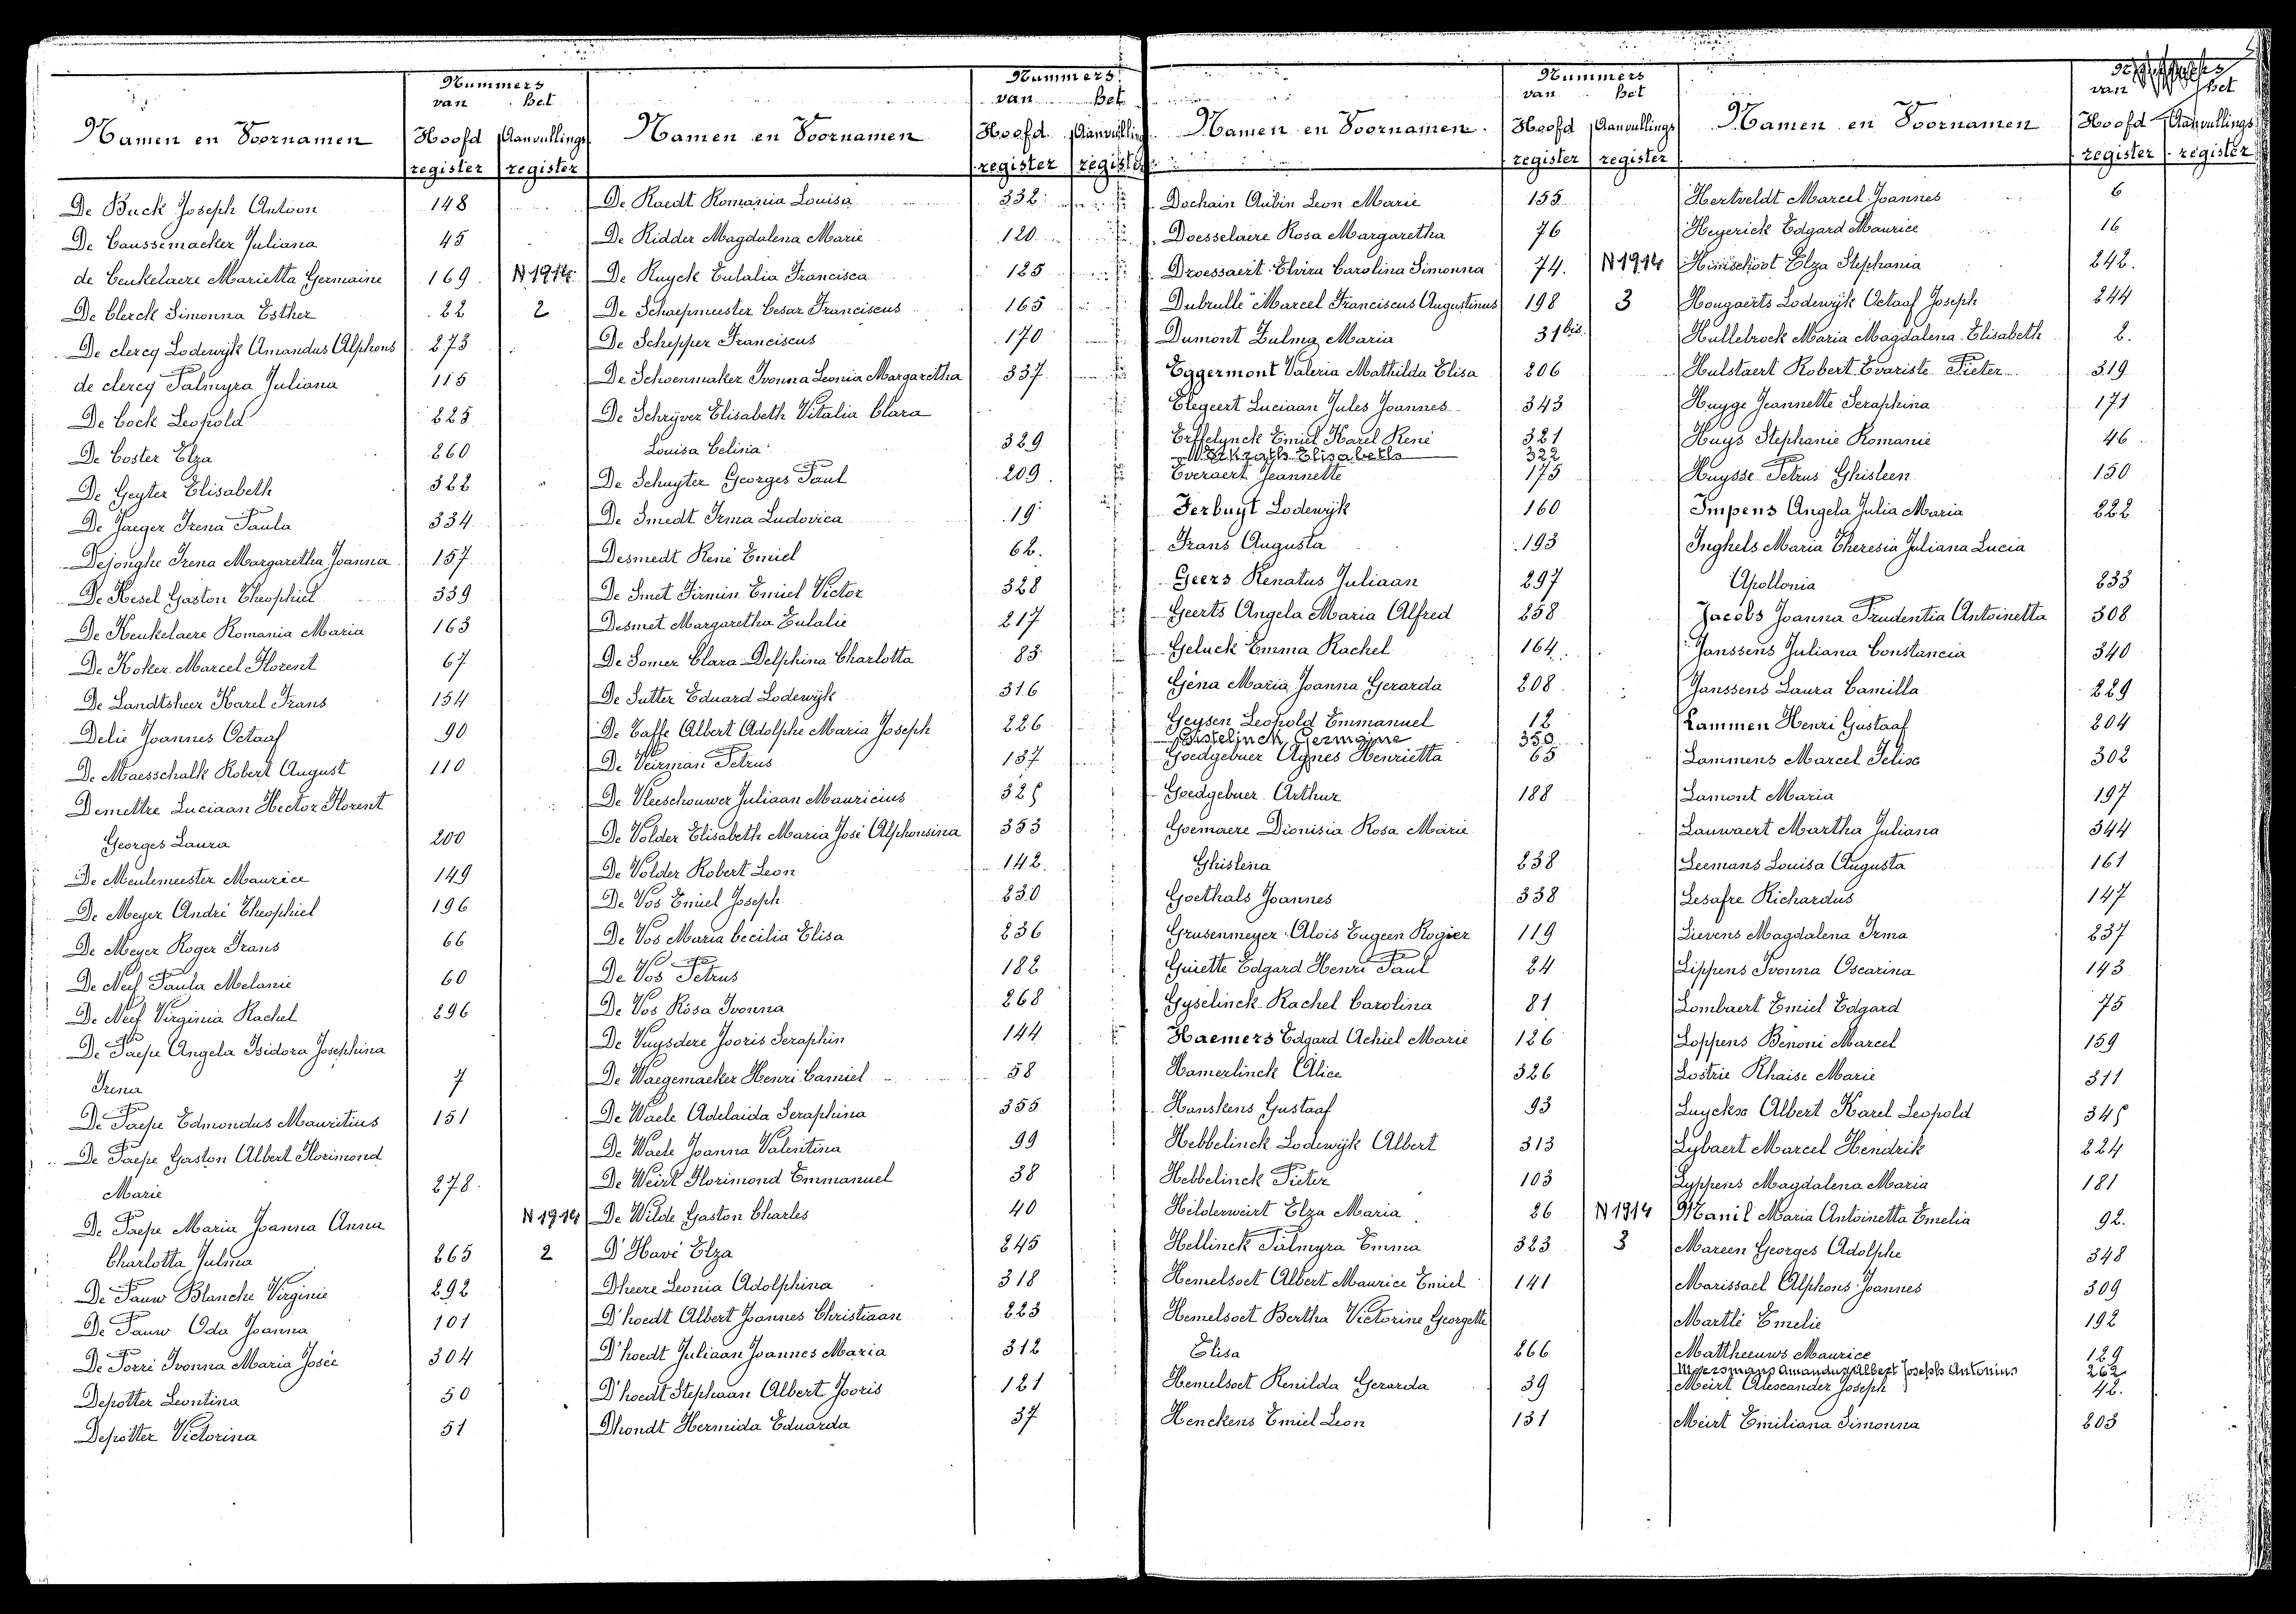 Nummers
van Bet
Namen en Voornamen Hoofd Aanvullings
register register
De Buck Joseph Antoon 148
De Caussemacker Juliana 45
de Ceukelaere Marietta Germaine 169 N 1914
De Clerck Simonna Esther 22 2
De clercq Lodewijk Amandus Alphons 273
de clercq Palmyra Juliana 115
De Cock Leopold 225
De Coster Elza 260
De Geyter Elisabeth 322
De Jaeger Irena Paula 334
Dejonghe Irena Margaretha Joanna 157
De Kesel Gaston Theophiel 339
De Keukelaere Romania Maria 163
De Koker Marcel Florent 67
De Landtsheer Karel Frans 154
Delie Joannes Octaaf 90
De Maesschalk Robert August 110
Demettre Luciaan Hector Florent
Georges Laura 200
De Meulemeester Maurice 149
De Meyer André Theophiel 196
De Meyer Roger Frans 66
De Neef Paula Melanie 60
De Neef Virginia Rachel 296
De Paepe Angela Isidora Josephina
Irena 7
De Paepe Edmondus Mauritius 151
De Paepe Gaston Albert Florimond
Marie 278
De Paepe Maria Joanna Anna N 1914
Charlotta Julma 265 2
De Pauw Blanche Virginie 292
De Pauw Oda Joanna 101
De Porré Ivonna Maria Josée 304
Depotter Leontina 50
Depotter Victorina 51
Nummers
van Bet
Namen en Voornamen Hoofd Aanvulling
register register
De Raedt Romania Louisa 332
De Ridder Magdalena Marie 120
De Ruyck Eulalia Francisca 125
De Schaepmeester Cesar Franciscus 165
De Schepper Franciscus 170
De Schoenmaker Ivonna Leonia Margaretha 337
De Schrijver Elisabeth Vitalia Clara
Louisa Celinia 329
De Schuyter Georges Paul 209
De Smedt Irma Ludovica 19
Desmedt René Emiel 62
De Smet Firmin Emiel Victor 328
Desmet Margaretha Eulalie 217
De Somer Clara Delphina Charlotta 83
De Sutter Eduard Lodewijk 316
De Taffe Albert Adolphe Maria Joseph 226
De Veirman Petrus 137
De Vleeschouwer Juliaan Mauricius 325
De Volder Elisabeth Maria José Alphonsina 353
De Volder Robert Leon 142
De Vos Emiel Joseph 230
De Vos Maria Cecilia Elisa 236
De Vos Petrus 182
De Vos Rosa Ivonna 268
De Vuysdere Jooris Seraphin 144
De Waegemaeker Henri Camiel 58
De Waele Adelaida Seraphina 355
De Waele Joanna Valentina 99
De Weirt Florimond Emmanuel 38
De Wilde Gaston Charles 40
D'Havé Elza 245
Dheere Leonia Adolphina 318
D'hoedt Albert Joannes Christiaan 223
D'hoedt Juliaan Joannes Maria 312
D'hoedt Stephaan Albert Jooris 121
Dhondt Hermida Eduarda 37
Nummers
van Bet
Namen en Voornamen Hoofd Aanvullings
register register
Dochain Aubin Leon Marie 155
Doesselaere Rosa Margaretha 76
Droessaert Elvira Carolina Simonna 74 N 1914
Dubrulle Marcel Franciscus Augustinus 198 3
Dumont Zulma Maria 31 bis
Eggermont Valeria Mathilda Elisa 206
Elegeert Luciaan Jules Joannes 343
Erffelynck Emiel Karel René 321
Elisabeth 322
Everaert Jeannette 175
Ferbuyt Lodewijk 160
Frans Augusta 193
Geers Renatus Juliaan 297
Geerts Angela Maria Alfred 258
Geluck Emma Rachel 164
Géna Maria Joanna Gerarda 208
Geysen Leopold Emmanuel 12
Gistelinck Germaine 350
Goedgebuer Agnes Henrietta 65
Goedgebuer Arthur 188
Goemaere Dionisia Rosa Marie
Ghislena 238
Goethals Joannes 338
Grusenmeyer Alois Eugeen Rogier 119
Guiette Edgard Henri Paul 24
Gyselinck Rachel Carolina 81
Haemers Edgard Achiel Marie 126
Hamerlinck Alice 326
Hanskens Gustaaf 93
Hebbelinck Lodewijk Albert 313
Hebbelinck Pieter 103
Hilderweirt Elza Maria 26 N 1914
Hellinck Palmyra Emma 323 3
Hemelsoet Albert Maurice Emiel 141
Hemelsoet Bertha Victorine Georgette
Elisa 266
Hemelsoet Renilda Gerarda 39
Henckens Emiel Leon 131
van Bet
Namen en Voornamen Hoofd Aanvullings
register register
Hertveldt Marcel Joannes 6
Heyerick Edgard Maurice 16
Himschoot Elza Stephania 242
Hongaerts Lodewijk Octaaf Joseph 244
Hullebrock Maria Magdalena Elisabeth 2
Hulstaert Robert Evariste Pieter 319
Huyge Jeannette Seraphina 171
Huys Stephanie Romanie 46
Huysse Petrus Ghisleen 150
Impens Angela Julia Maria 222
Inghels Maria Theresia Juliana Lucia
Apollonia 233
Jacobs Joanna Prudentia Antoinetta 308
Janssens Juliana Constancia 340
Janssens Laura Camilla 229
Lammen Henri Gustaaf 204
Lammens Marcel Felix 302
Lamont Maria 197
Lauwaert Martha Juliana 344
Leemans Louisa Augusta 161
Lesafre Richardus 147
Lievens Magdalena Irma 237
Lippens Ivonna Oscarina 143
Lombaert Emiel Edgard 75
Loppens Benoni Marcel 159
Lostrie Rhaise Marie 311
Luyckx Albert Karel Leopold 345
Lybaert Marcel Hendrik 224
Lyppens Magdalena Maria 181
Manil Maria Antoinetta Emelia 92
Mareen Georges Adolphe 348
Marissael Alphons Joannes 309
Martlé Emelie 192
Mattheeuws Maurice 129
Meersmans Amandus Albert Joseph Antonius 262
Meirt Alexander Joseph 42
Meirt Emiliana Simonna 203